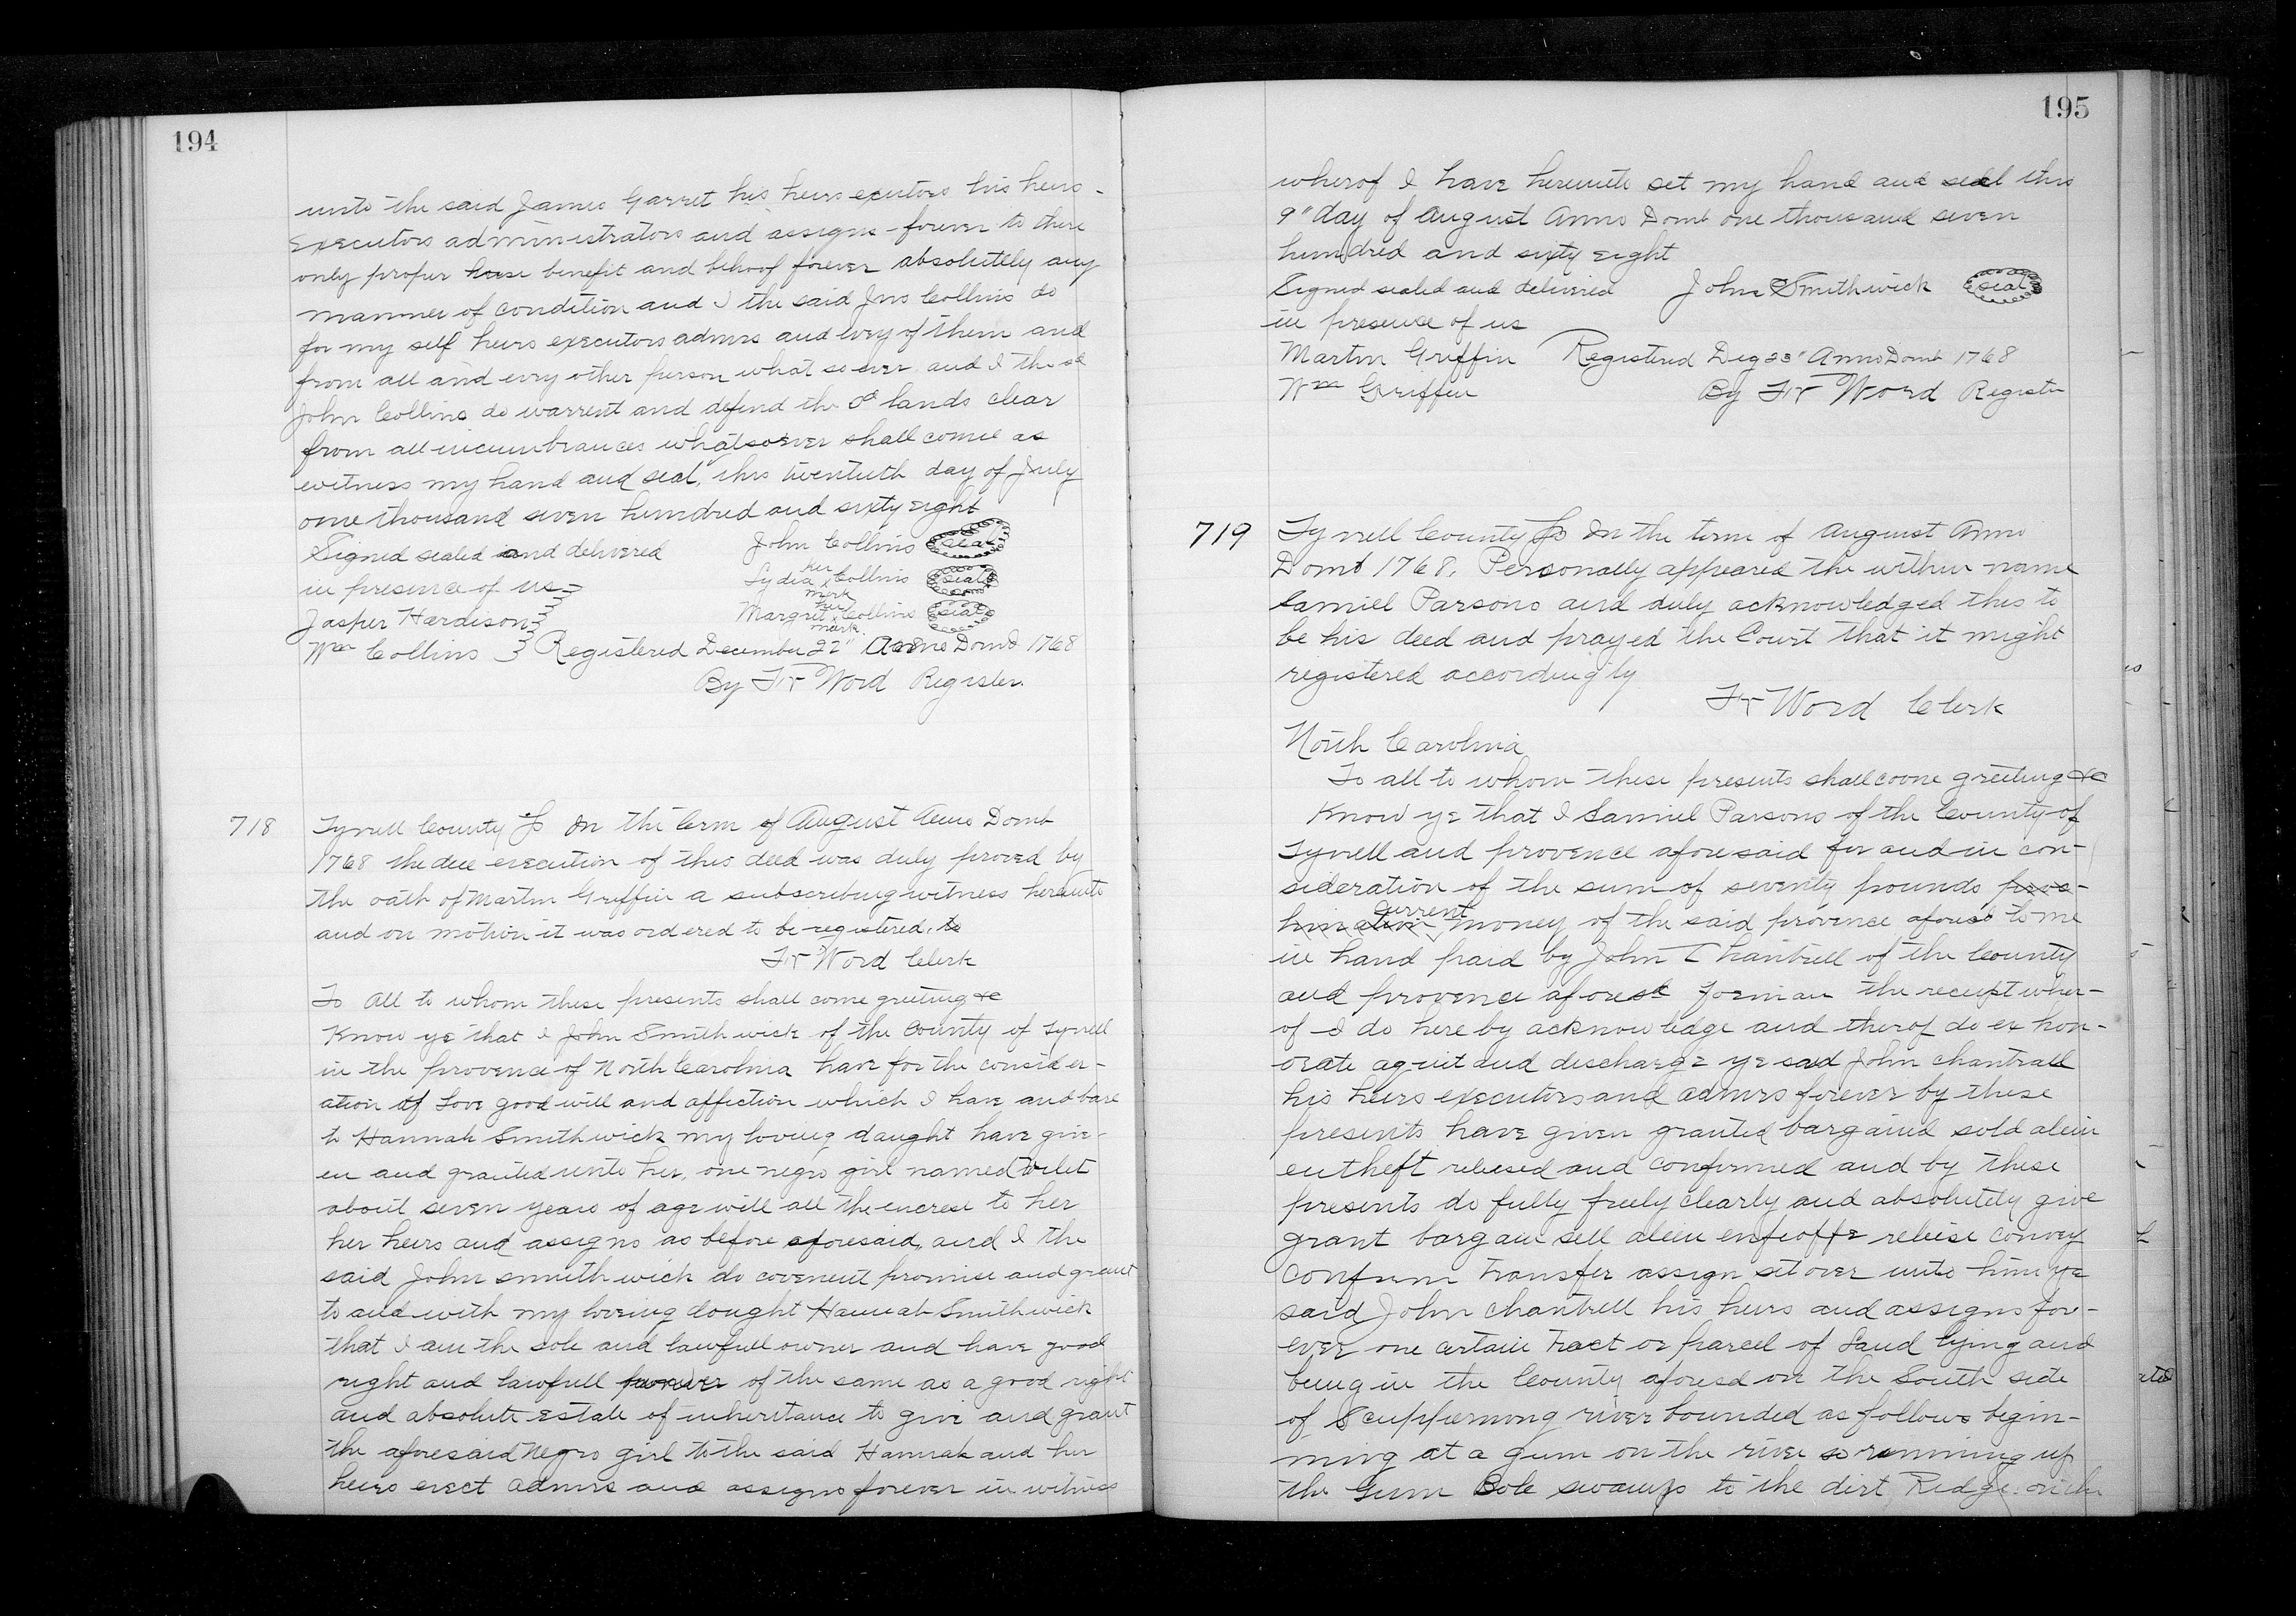 194
unto the said James Garret his heirs excutors his heirs -
Executors administrators and assigns forever to there
only proper house benefit and behoof forever absolutely any
manner of condition and I the said Jno Collins do
for my self heirs executors admrs and evry of them and
from all and evry other person what so ever and I the sd
John Collins do warrent and defend the sd lands clear
from all incumbrances whatsoever shall come as
witness my hand and seal, this twentuth day of July
one thousand seven hundred and sixty eight
Signed sealed and delivered John Collins seal
in presence of us Lydia her mark Collins seal
Jasper Hardison Margret her mark Collins seal
Wm Collins Registered December 22" Anno Domb 1768
By Word Register.
718 Tyrrell County In the term of August Anno Domb
1768 the due execution of this deed was duly proved by
the oath of Martin Griffin a subscribing witness hereunto
and on motion it was ordered to be registered, to
Word Clerk
To all to whom these presents shall come greeting &c
Know ye that I John Smithwick of the County of Tyrrell
in the provence of North Carolina have for the consider-
ation of Love good will and affection which I have and bare
to Hannah Smithwick my loving daught have give-
en and granted unto her, one negro girl named
about seven years of age will all the increse to her
her heirs and assigns as before aforesaid, and I the
said John Smithwick do covenent promise and grant
to and with my loveing dought Hannah Smithwick
that I am the sole and lawfull owner and have good
right and lawfull of the same as a good right
and absolute estate of inheritance to give and grant
the aforesaid Negro girl to the said Hannah and her
heirs exect admrs and assigns forever in witness
195
wherof I have hereunto set my hand and seal this
9" day of August Anno Domb one thousand seven
hundred and sixty eight
Signed sealed and delivered John Smithwick seal
in presence of us
Martin Griffin Registered Deg 23" Anno Domb 1768
Wm Griffin By Word Register
719 Tyrrell County In the term of August Anno
Domb 1768, Personally appeared the within name
Samuel Parsons and duly acknowledged this to
be his deed and prayed the Court that it might
registered accordingly
Word Clerk
North Carolina
To all to whom these presents shall come greeting &c
Know ye that I Samuel Parsons of the County of
Tyrrell and provence aforesaid for and in con-
sideration of the sum of seventy pounds proc-
current money of the said provence aforesd to me
in hand paid by John Chantrell of the County
and provence aforesd Joeman the receipt wher-
of I do here by acknowledge and therof do ex hon-
orate aquit and discharge ye said John Chantrall
his heirs executors and admrs forever by these
presents have given granted bargaind sold alein
entheft releised and confirmed and by these
presents do fully freely clearly and absolutely give
grant bargain sell alein enfeoffe releise convey
confirm transfer assign set over unto him ye
said John Chantrell his heirs and assigns for-
ever one certain tract or parcel of Land lying and
being in the County aforesd on the South side
of Scuppernong river bounded as follows begin-
ning at a gum on the river so running up
the Gum Bole swamp to the dirt Ridge